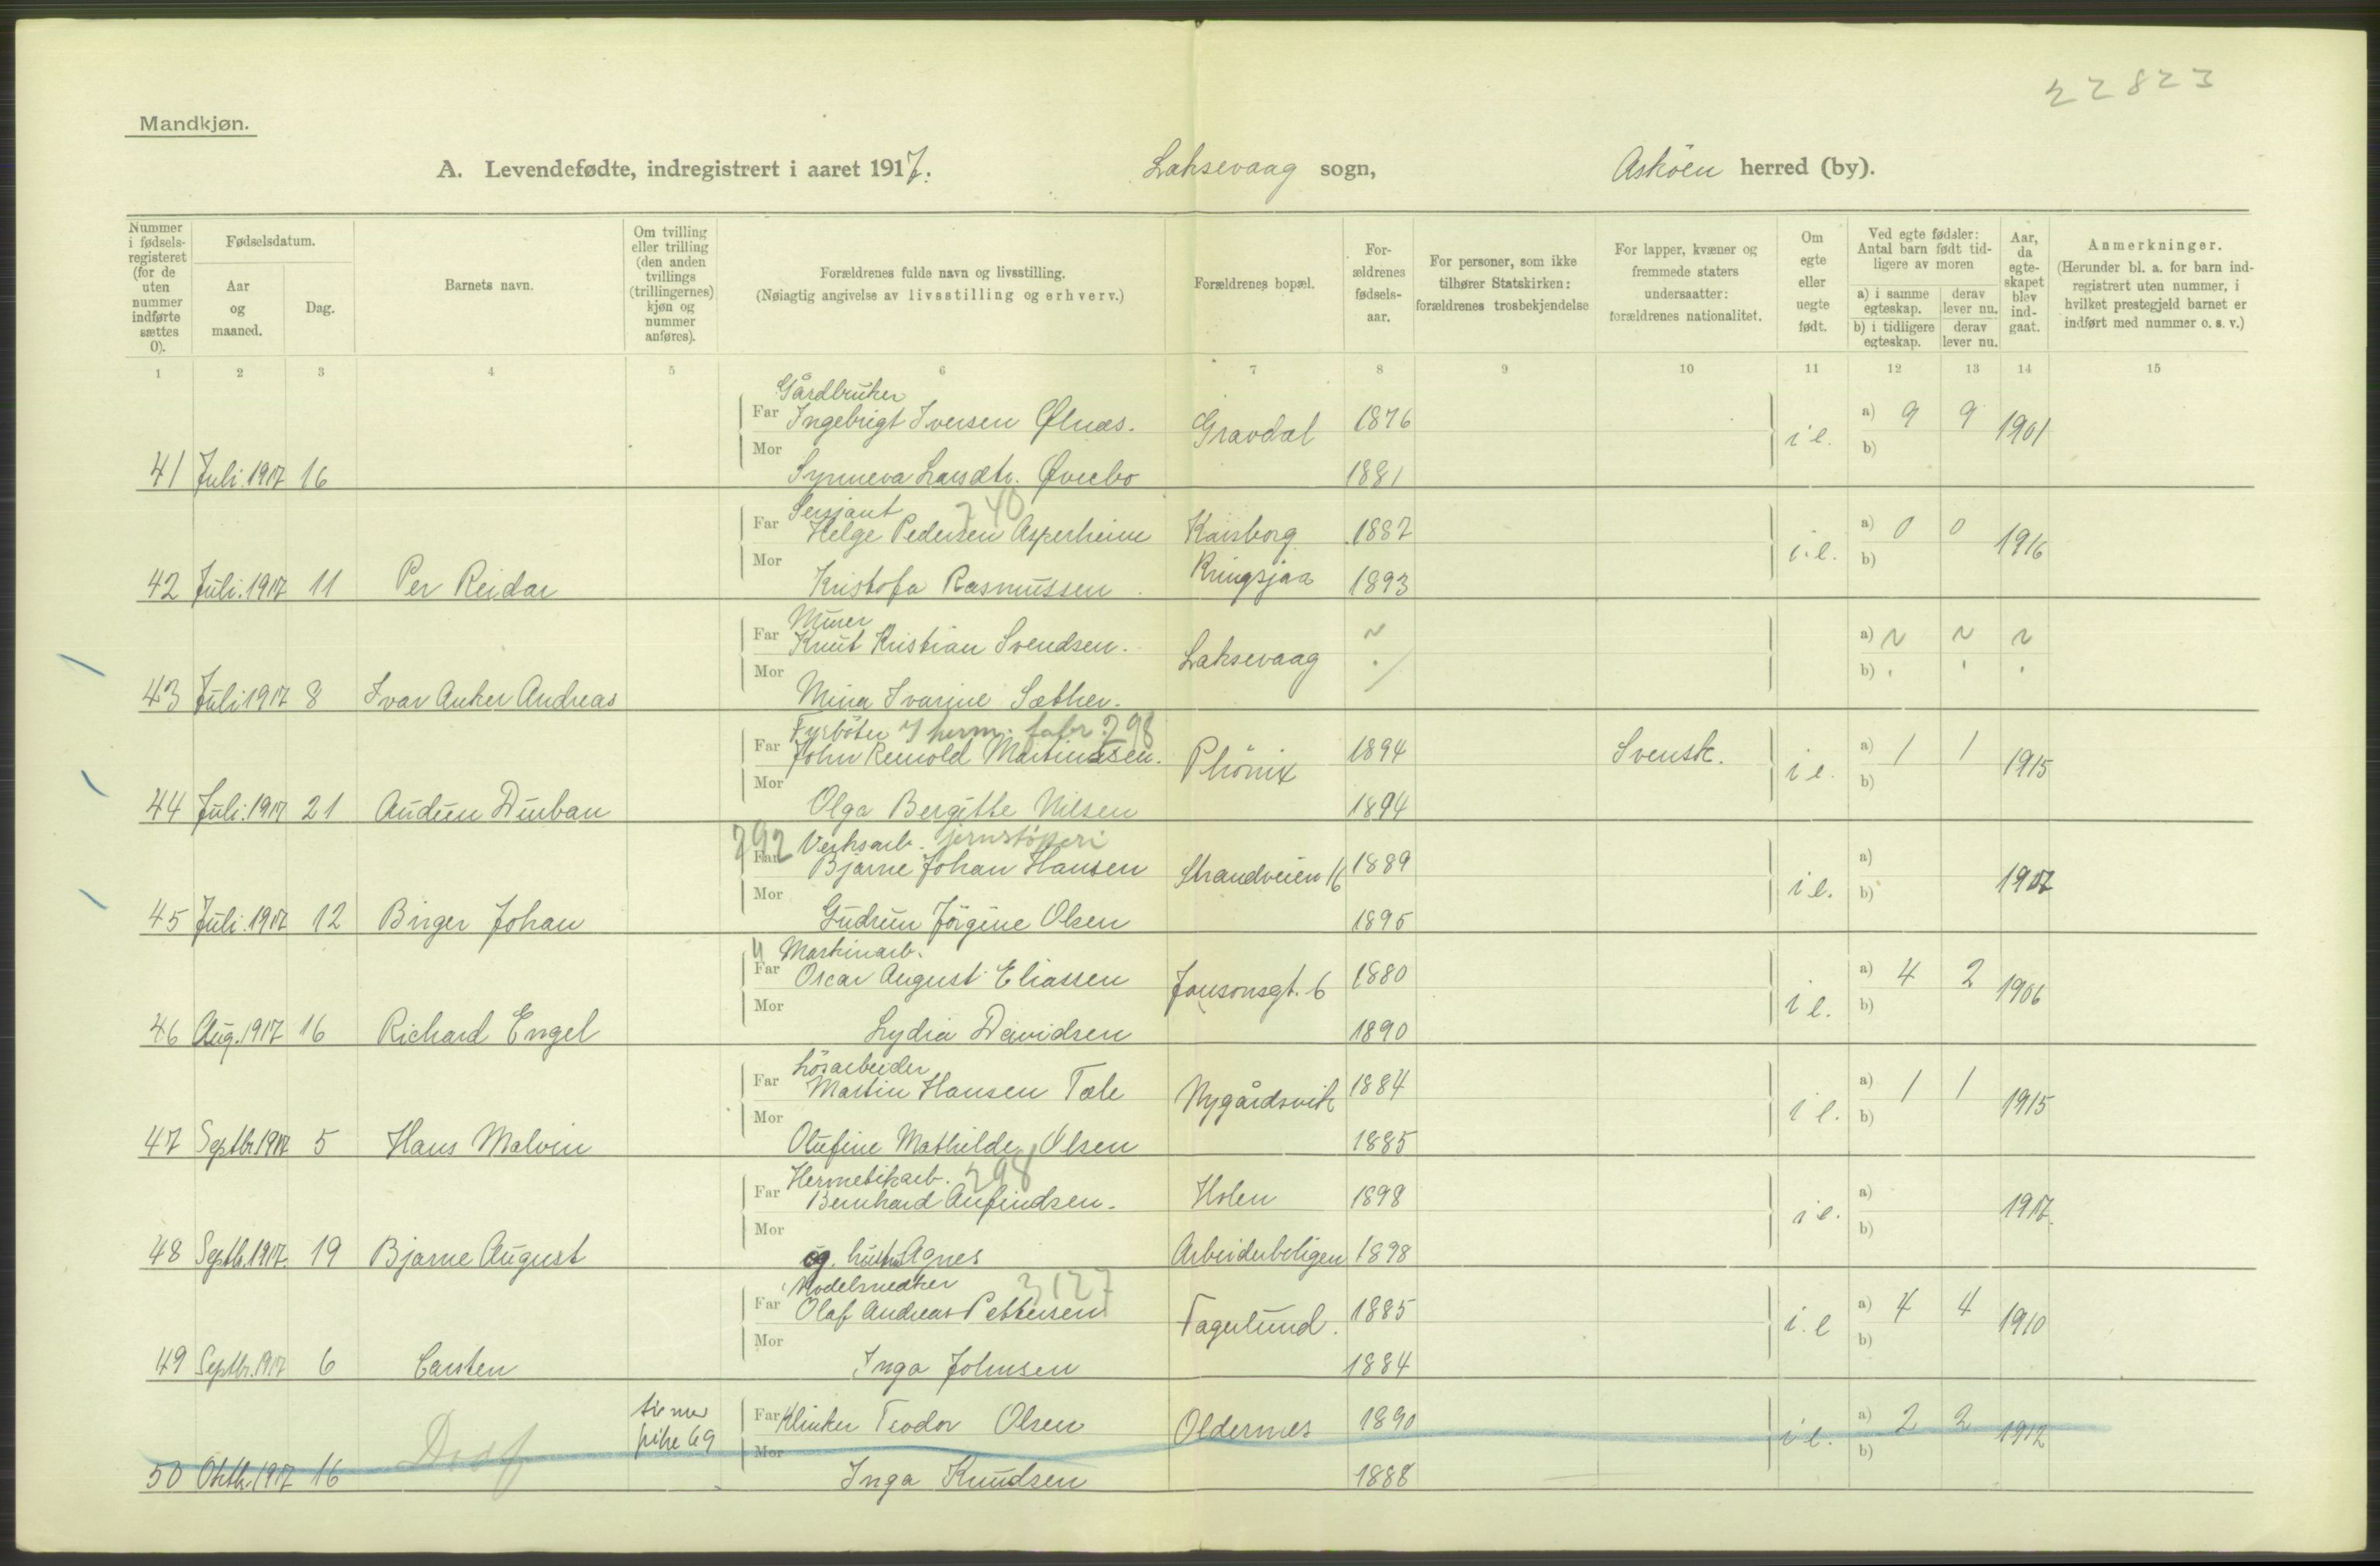 22823
Mandkjøn.
A. Levendefødte, indregistrert i aaret 1917. Laksevaag sogn, Asköen herred (by).
Nummer i fødsels-registeret (for de uten nummer indførte sættes 0).
Fødselsdatum.
Aar og maaned.
Dag.
Barnets navn.
Om tvilling eller trilling (den anden tvillings (trillingernes) kjøn og nummer anføres).
Forældrenes fulde navn og livsstilling.
(Nøiagtig angivelse av livsstilling og erhverv.)
Forældrenes bopæl.
For-ældrenes fødsels-aar.
For personer, som ikke tilhører Statskirken: forældrenes trosbekjendelse
For lapper, kvæner og fremmede staters undersaatter: forældrenes nationalitet.
Om egte eller uegte født.
Ved egte fødsler: Antal barn født tid-ligere av moren
a) i samme egteskap. derav lever nu.
b) i tidligere egteskap. derav lever nu.
Aar, da egte-skapet blev ind-gaat.
Anmerkninger.
(Herunder bl. a. for barn ind-registrert uten nummer, i hvilket prestegjeld barnet er indført med nummer o. s. v.)
1 2 3 4 5 6 7 8 9 10 11 12 13 14 15
Gårdbruker
Far Ingebrigt Iversen Ølnæs. Gravdal 1876 i e. a) 9 9 1901
Mor b)
41 Juli 1917 16 Synneva Larsdtr. Øvrebo 1881
Sersjant 240
Far Helge Pedersen Asperheim Kaisborg 1887 i.e. a) 0 0 1916
Mor b)
42 Juli.1917 11 Per Reidar Kristofa Rasmussen Kringsjaa 1893
Murer
Far Knut Kristian Svendsen. Laksevaag ~ a) ~ ~ ~
Mor b)
43 Juli 1917 8 Ivar Anker Andreas Mina Ivarine Sæther.
Fyrböter I herm. fabr. 298
Far John Reinold Martinssen. Phönix 1894 Svensk. i e. a) 1 1 1915
Mor b)
44 Juli.1917 21 Audun Durban Olga Bergitte Nilsen 1894
292 Verksarb. jernstöperi
Far Bjarne Johan Hansen Strandveien 16 1889 i e. a) 1917
Mor b)
45 Juli.1917 12 Birger Johan Gudrun Jörgine Olsen 1895
" Maskinarb.
Far Oscar August Eliassen Jansonsgt. 6 1880 i e. a) 4 2 1906
Mor b)
46 Aug.1917 16 Richard Engel Lydia Davidsen 1890
Lösarbeider
Far Martin Hansen Tale Nygårdsvik 1884 i e. a) 1 1 1915
Mor b)
47 Septbr.1917 5 Hans Malvin Olufine Mathilde Olsen 1885
Hermetikarb. 298
Far Bernhard Anfindsen. Holen 1898 i e. a) 1917.
Mor b)
48 Septb.1917. 19 Bjarne August og hustru Agnes Arbeiderboligen 1898
Modelsnedker 3127
Far Olaf Andreas Pettersen Fagerlund. 1885 i.e a) 4 4 1910
Mor b)
49 Septbr.1917 6 Carsten Inga Johnsen 1884
tie mer
pike 69
Far Klinker Teodor Olsen Oldernes 1890 i e. a) 2 2 1912
Mor b)
50 Oktbr.1917 16 Dødf Inga Knudsen 1888